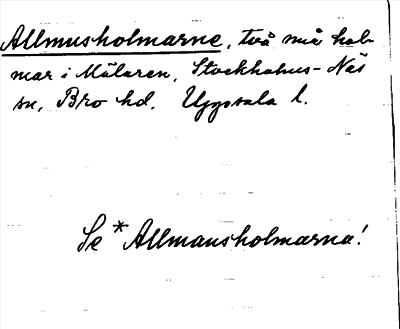 Allmusholmarne, två små hol-
mar i Mälaren, Stockholms-Näs
sn, Bro hd. Uppsala l.
Se *Allmansholmarna!